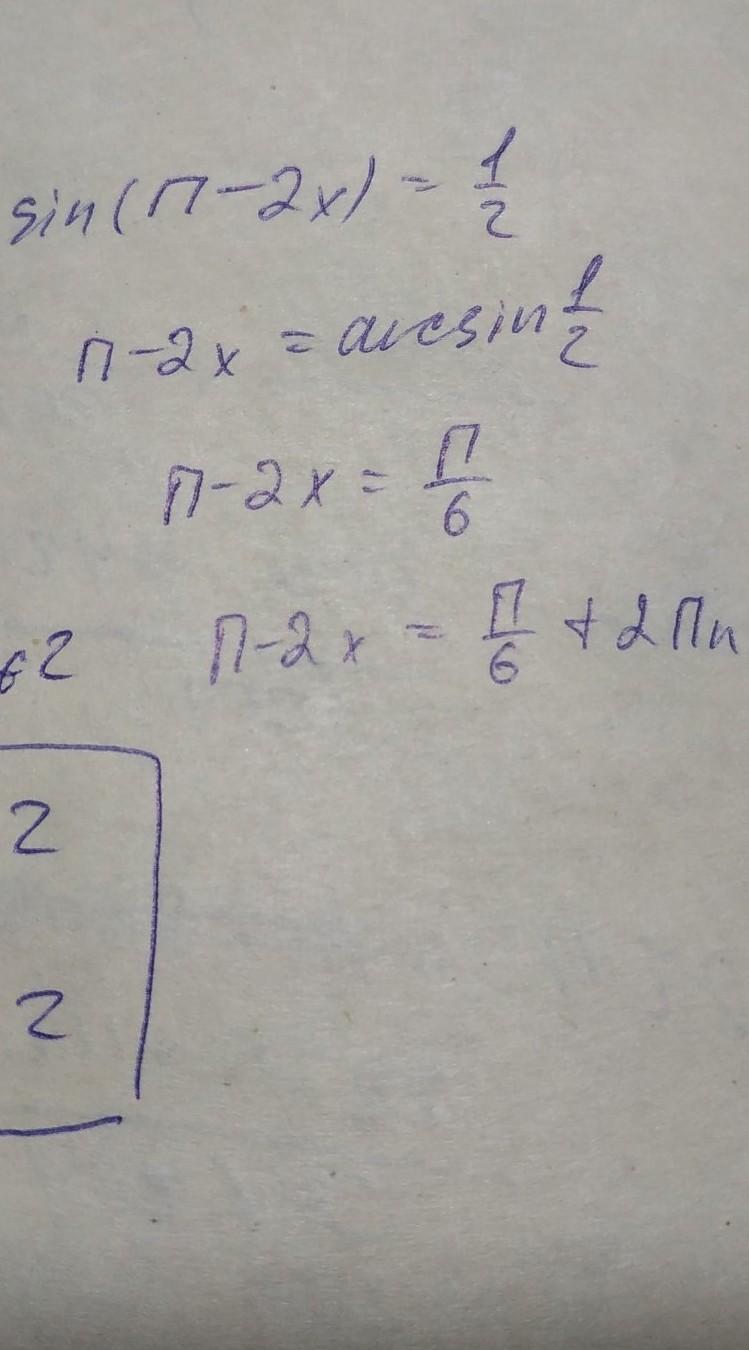 sin(π-2x) = 1/2
π-2x = arcsin 1/2
π-2x = π/6
∈Z π-2x = π/6 + 2πn
Z
Z